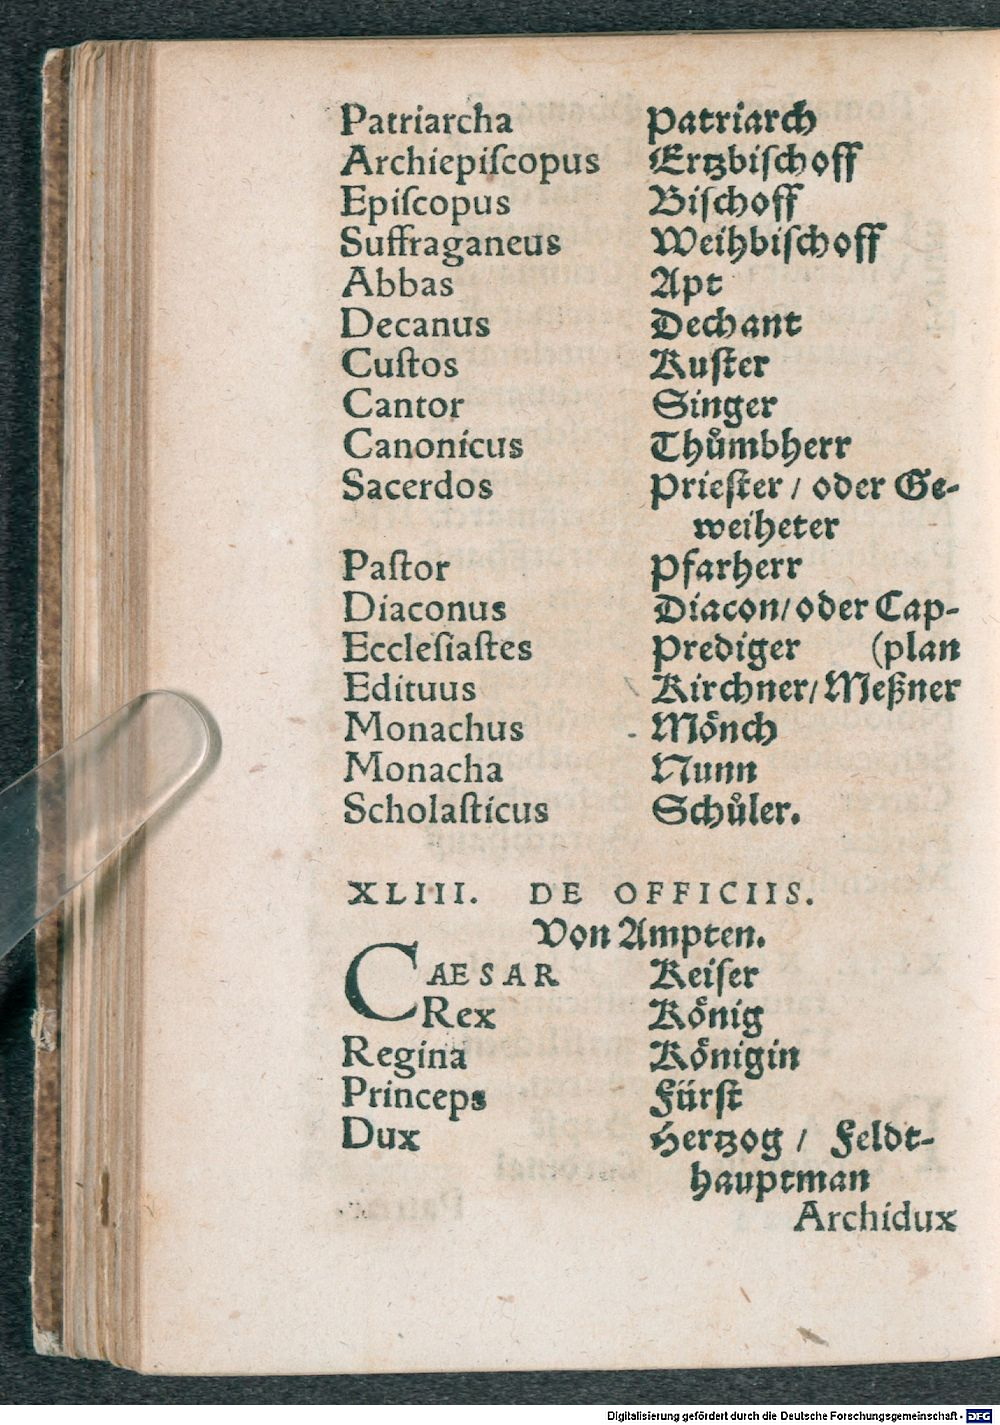 Patriarcha Patriarch
Archiepiſcopus Ertzbiſchoff
Epiſcopus Biſchoff
Suffraganeus Weihbiſchoff
Abbas Apt
Decanus Dechant
Cuſtos Kuſter
Cantor Singer
Canonicus Thuͦmbherr
Sacerdos Prieſter / oder Ge-
weiheter
Paſtor Pfarherr
Diaconus Diacon/ oder Cap-
Eccleſiaſtes Prediger (plan
Edituus Kirchner/ Meßner
Monachus Moͤnch
Monacha Nunn
Scholaſticus Schuͦler.
XLIII. DE OFFICIIS.
Von Ampten.
CAESAR Keiſer
Rex Koͤnig
Regina Koͤnigin
Princeps Fürſt
Dux Hertzog / Feldt-
hauptman
Archidux
Digitalisierung gefördert durch die Deutsche Forschungsgemeinschaft - DFG